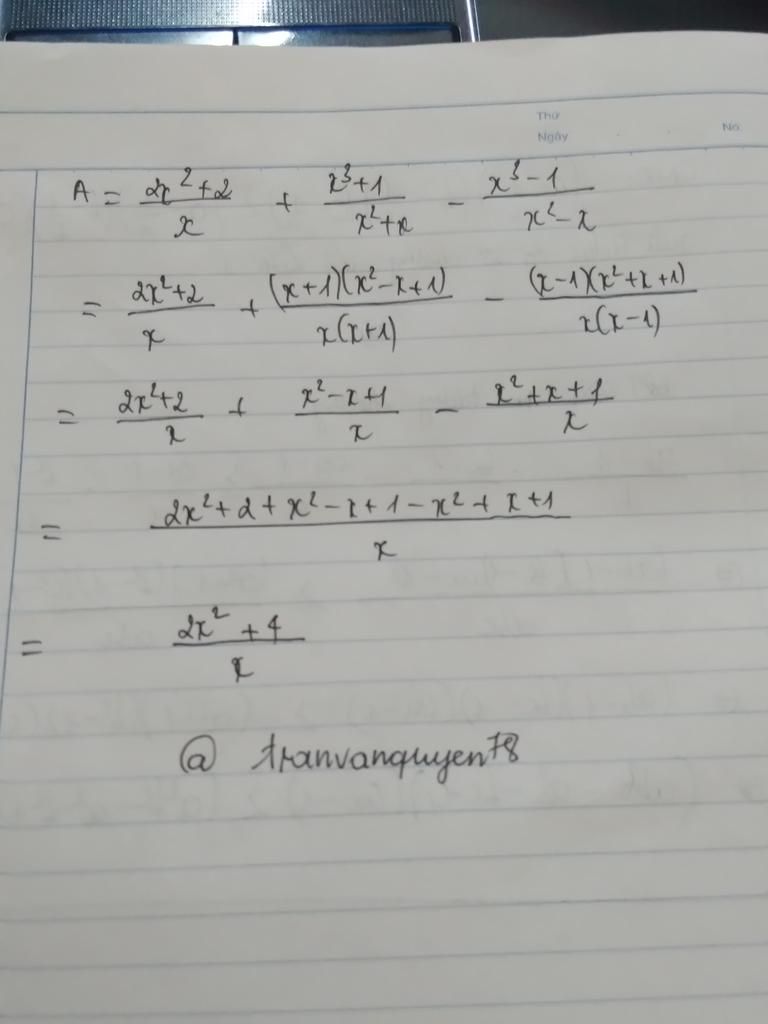 Thứ
Ngày
No.
A = (2x²+2)/x + (x³+1)/(x²+x) - (x³-1)/(x²-x)
= (2x²+2)/x + (x+1)(x²-x+1)/x(x+1) - (x-1)(x²+x+1)/x(x-1)
= (2x²+2)/x + (x²-x+1)/x - (x²+x+1)/x
= (2x²+2+x²-x+1-x²+x+1)/x
= (2x²+4)/x
@ tranvanquyen78